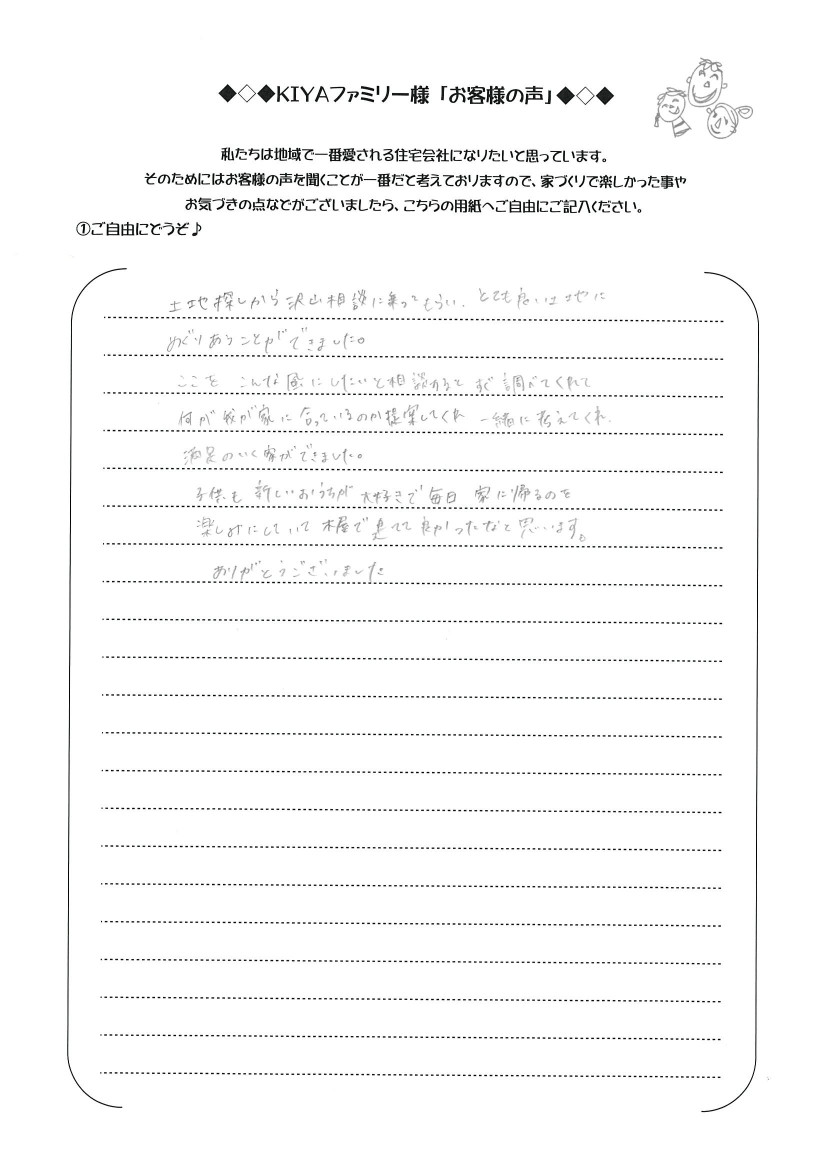 ◆◇◆KIYAファミリー様「お客様の声」◆◇◆
私たちは地域で一番愛される住宅会社になりたいと思っています。
そのためにはお客様の声を聞くことが一番だと考えておりますので、家づくりで楽しかった事や
お気づきの点などがございましたら、こちらの用紙へご自由にご記入ください。
①ご自由にどうぞ♪
土地探しから沢山相談に乗ってもらい、とても良い土地に
めぐりあうことができました。
ここを こんな風にしたいと相談すると すぐ調べてくれて
何が我が家に合っているのか提案してくれ 一緒に考えてくれ、
満足のいく家ができました。
子供も 新しいおうちが 大好きで 毎日 家に帰るのを
楽しみにしていて 木屋で建てて良かったなと思います。
ありがとうございました